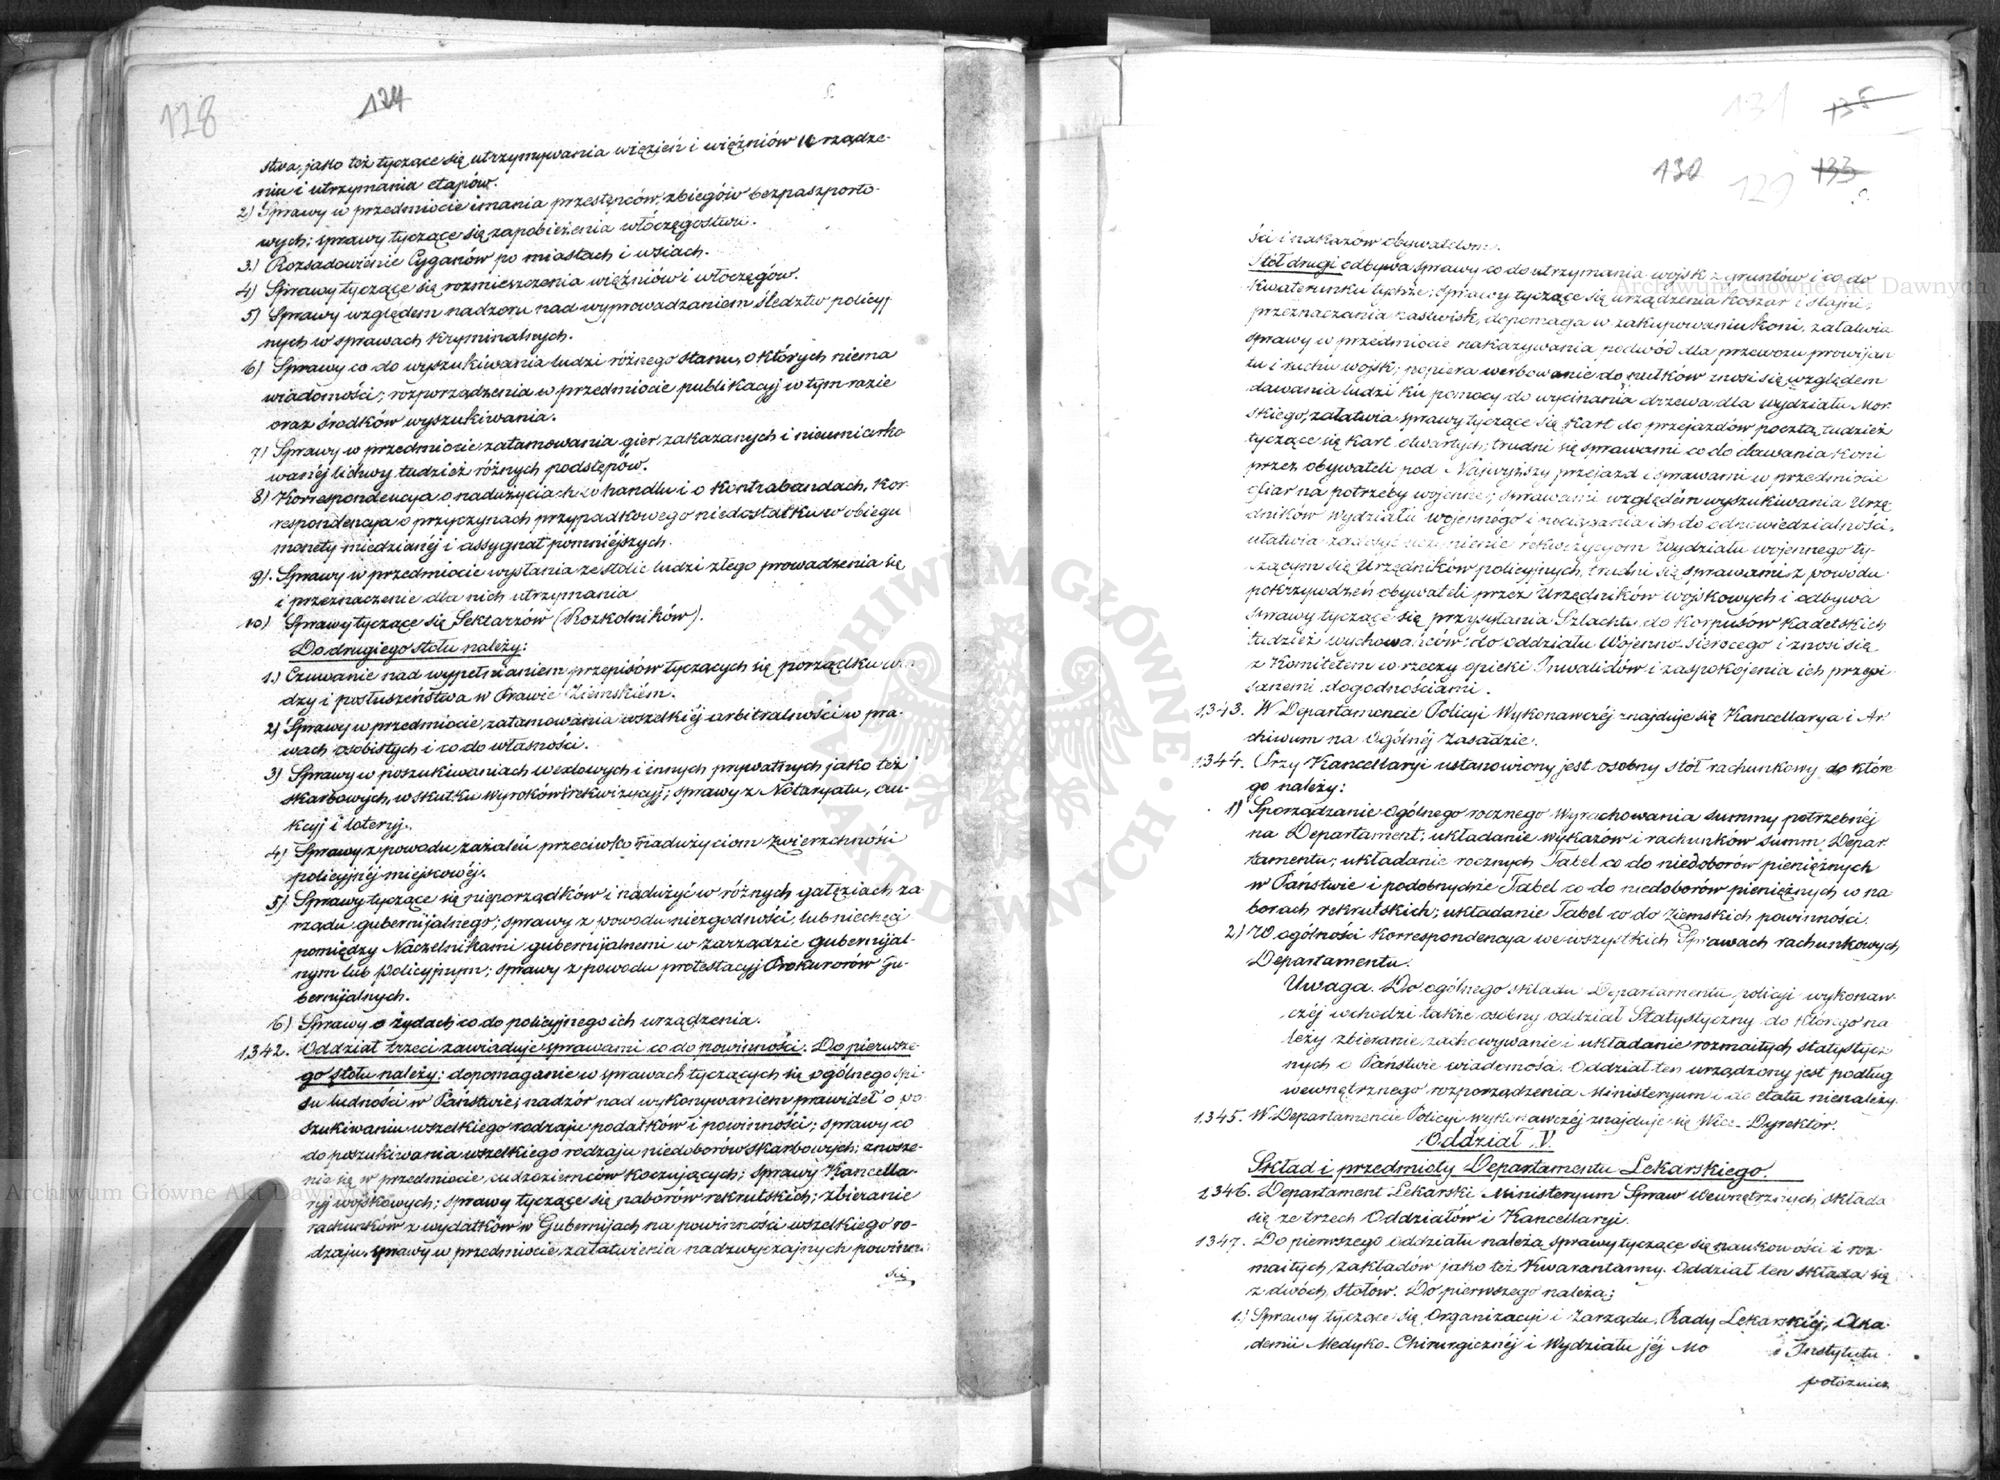 128
124
stwa, jako też tyczące się utrzymywania więzień i więźniów u rządze-
niu i utrzymania etapów.
2) Sprawy w przedmiocie imania przestępców, zbiegów bezpaszporto-
wych; sprawy tyczące się zapobieżenia włóczęgostwu.
3.) Rozsadowienie Cyganów po miastach i wsiach.
4) Sprawy tyczące się rozmieszczenia więźniów i włóczęgów.
5) Sprawy względem nadzoru nad wyprowadzaniem śledztw policyj
nych w sprawach kryminalnych.
6) Sprawy co do wyszukiwania ludzi różnego stanu, o których niema
wiadomości; rozporządzenia w przedmiocie publikacyj w tym razie
oraz środków wyszukiwania.
7) Sprawy w przedmiocie zatamowania gier zakazanych i nieumiarko
wanéj lichwy, tudzież różnych podstępów.
8) Korrespondencya o nadużyciach w handlu i o kontrabandach, kor-
respondencya o przyczynach przypadkowego niedostatku w obiegu
monety miedzianéj i assygnat pomniejszych.
9). Sprawy w przedmiocie wysłania ze stolic ludzi złego prowadzenia się
i przeznaczenie dla nich utrzymania
10) Sprawy tyczące się Sektarzów (Rozkolników).
Do drugiego stołu należy:
1.) Czuwanie nad wypełnianiem przepisów tyczących się porządku wła
dzy i posłuszeństwa w Prawie Ziemskiem.
2) Sprawy w przedmiocie zatamowania wszelkiéj arbitralności w pra-
wach osobistych i co do własności.
3) Sprawy w poszukiwaniach wexlowych i innych prywatnych jako też
skarbowych, w skutku wyroków i rekwizycyj; sprawy z Notaryatu, au-
kcyj i loteryj.
4) Sprawy z powodu zażaleń przeciwko nadużyciom Zwierzchności
policyjnéj miejscowéj.
5) Sprawy tyczące się nieporządków i nadużyć w różnych gałęziach za
rządu gubernijalnego; sprawy z powodu niezgodności lub niechęci
pomiędzy Naczelnikami gubernijalnemi w zarządzie gubernijal-
nym lub policyjnym; sprawy z powodu protestacyj Prokuratorów Gu-
bernijalnych.
6) Sprawy o żydach co do policyjnego ich urządzenia.
1342. Oddział trzeci zawiaduje sprawami co do powinności. Do pierwsze-
go stołu należy: dopomaganie w sprawach tyczących się ogólnego spi-
su ludności w Państwie; nadzór nad wykonywaniem prawideł o po-
szukiwaniu wszelkiego rodzaju podatków i powinności; sprawy co
do poszukiwania wszelkiego rodzaju niedoborów skarbowych; znosze-
nie się w przedmiocie cudzoziemców koczujących; sprawy Kancella-
ryj wojskowych; sprawy tyczące się naborów rekrutskich; zbieranie
rachunków z wydatków w Gubernijach na powinności wszelkiego ro-
dzaju, sprawy w przedmiocie załatwienia nadzwyczajnych powinno
ści
131
135
130
129
133
ści i nakazów obywatelom.
Stół drugi odbywa sprawy co do utrzymania wojsk z gruntów i co do
kwaterunku tychże; sprawy tyczące się urządzenia koszar i stajni,
przeznaczania pastwisk, dopomaga w zakupowaniu koni, załatwia
sprawy w przedmiocie nakazywania podwód dla przewozu prowijan
tu i ruchu wojsk; popiera werbowanie do mułków znosi się względem
dawania ludzi ku pomocy do wycinania drzewa dla wydziału Mor-
skiego, załatwia sprawy tyczące się kart do przejazdów pocztą, tudzież
tyczące się kart otwartych; trudni się sprawami co do dawania koni
przez obywateli pod Najwyższy przejazd i sprawami w przedmiocie
ofiar na potrzeby wojenne; sprawami względem wyszukiwania Urzę
dników wydziału wojennego i pociągania ich do odpowiedzialności,
ułatwia zadosyć uczynienie rekwizycyom Wydziału wojennego ty-
czącym się Urzędników policyjnych, trudni się sprawami z powodu
pokrzywdzeń obywateli przez Urzędników wojskowych i odbywa
sprawy tyczące się przysyłania Szlachty do Korpusów Kadetskich
tudzież wychowańców do oddziału Wojenno-sierocego i znosi się
z Komitetem w rzeczy opieki Inwalidów i zaspokojenia ich przepi
sanemi dogodnościami.
1343. W Departamencie Policyi Wykonawczéj znajduje się Kancellarya i Ar
chiwum na ogólnéj zasadzie.
1344. Przy Kancellaryi ustanowiony jest osobny stół rachunkowy do które
go należy:
1) Sporządzanie ogólnego rocznego wyrachowania summy potrzebnéj
na Departament; układanie wykazów i rachunków summ Depar-
tamentu; układanie rocznych Tabel co do niedoborów pieniężnych
w Państwie i podobnychże Tabel co do niedoborów pieniężnych w na
borach rekrutskich; układanie Tabel co do ziemskich powinności.
2) W ogólności korrespondencya we wszystkich sprawach rachunkowych
Departamentu.
Uwaga. Do ogólnego składu Departamentu policyi wykonaw-
czéj wchodzi także osobny oddział Statystyczny do którego na
leży zbieranie, zachowywanie i układanie rozmaitych statystycz
nych o Państwie wiadomości. Oddział ten urządzony jest podług
wewnętrznego rozporządzenia Ministeryum i do etatu nienależy.
1345. W Departamencie Policyi wykonawczéj znajduje się Wice-Dyrektor.
Oddział V.
Skład i przedmioty Departamentu Lekarskiego.
1346. Departament Lekarski Ministeryum Spraw Wewnętrznych składa
się ze trzech Oddziałów i Kancellaryi.
1347. Do pierwszego oddziału należą sprawy tyczące się naukowości i roz-
maitych zakładów jako też Kwarantanny. Oddział ten składa się
z dwóch stołów. Do pierwszego należą;
1.) Sprawy tyczące się Organizacyi i Zarządu Rady Lekarskiéj, Aka-
demii Medyko-Chirurgicznéj i Wydziału jéj Mo i Instytutu
położnicz
Archiwum Główne Akt Dawnych
Archiwum Główne Akt Dawnych
ARCHIWUM GŁÓWNE AKT DAWNYCH